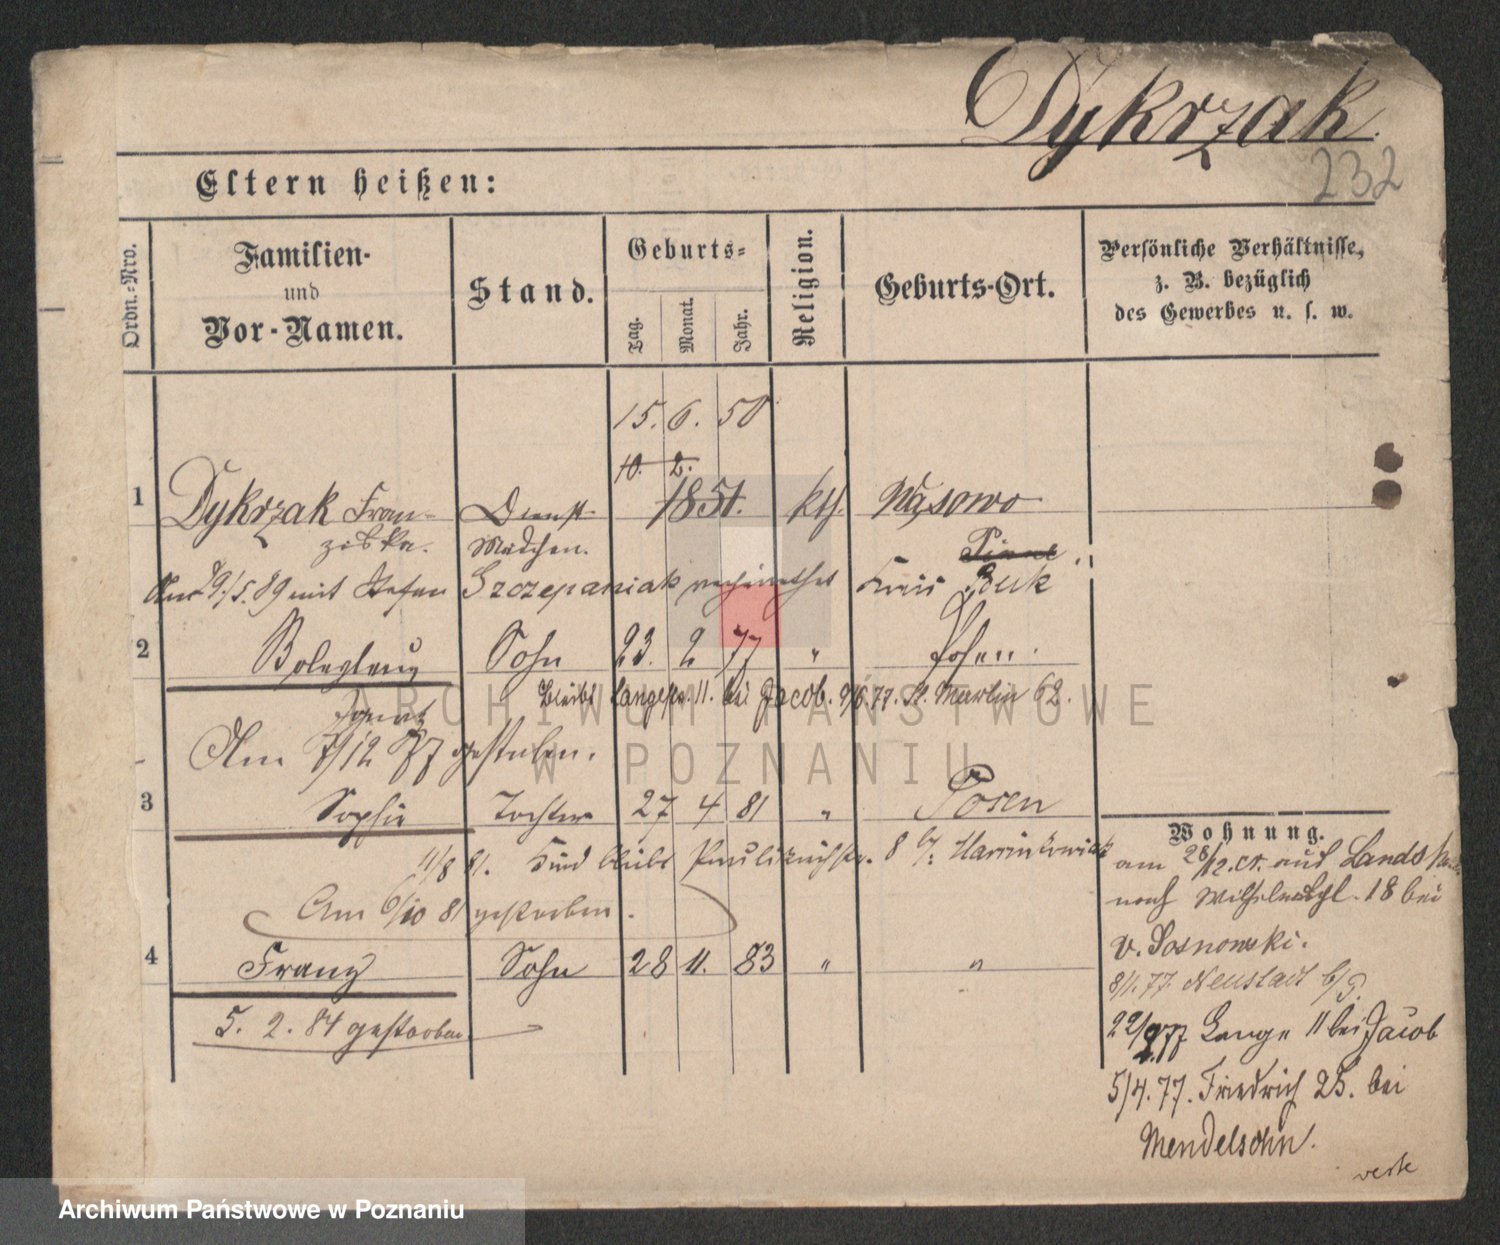 Dykrzak.
232
Eltern heißen:
Ordn.-Nro.
Familien-
und
Vor-Namen.
Stand.
Geburts-
Tag.
Monat.
Jahr.
Religion.
Geburts-Ort.
Persönliche Verhältnisse,
z. B. bezüglich
des Gewerbes u. s. w.
15. 6. 50
10. 2.
1 Dykrzak Fran- Dienst- 1851. kth. Wąsowo
ziska. Mädchen. Pinne
Am 29./5.89 mit Stefan Szczepaniak verheirathet Kreis Buk
2 Boleslaus Sohn 23. 2 77 " Posen.
Bleibt Langestr. 11. bei Jacob. 9/6.77. St. Martin 62.
Ignatz
Am 7/12 77 gestorben.
3 Sophie Tochter 27 4 81 " Posen
11/8 81. Kind bleibt Paulikirchstr. 8 b/:
Am 6/10 81 gestorben.
4 Franz Sohn 28 11. 83 " "
5. 2. 84 gestorben
Wohnung.
am 28/12. cr. aus
nach Wilhelmspl. 18 bei
v. Sosnowski.
8/1.77 Neustadt b/P.
22/2 77 Lange 11 bei Jacob
5/4.77. Friedrich 25. bei
Mendelsohn.
verte
ARCHIWUM PAŃSTWOWE
W POZNANIU
Archiwum Państwowe w Poznaniu